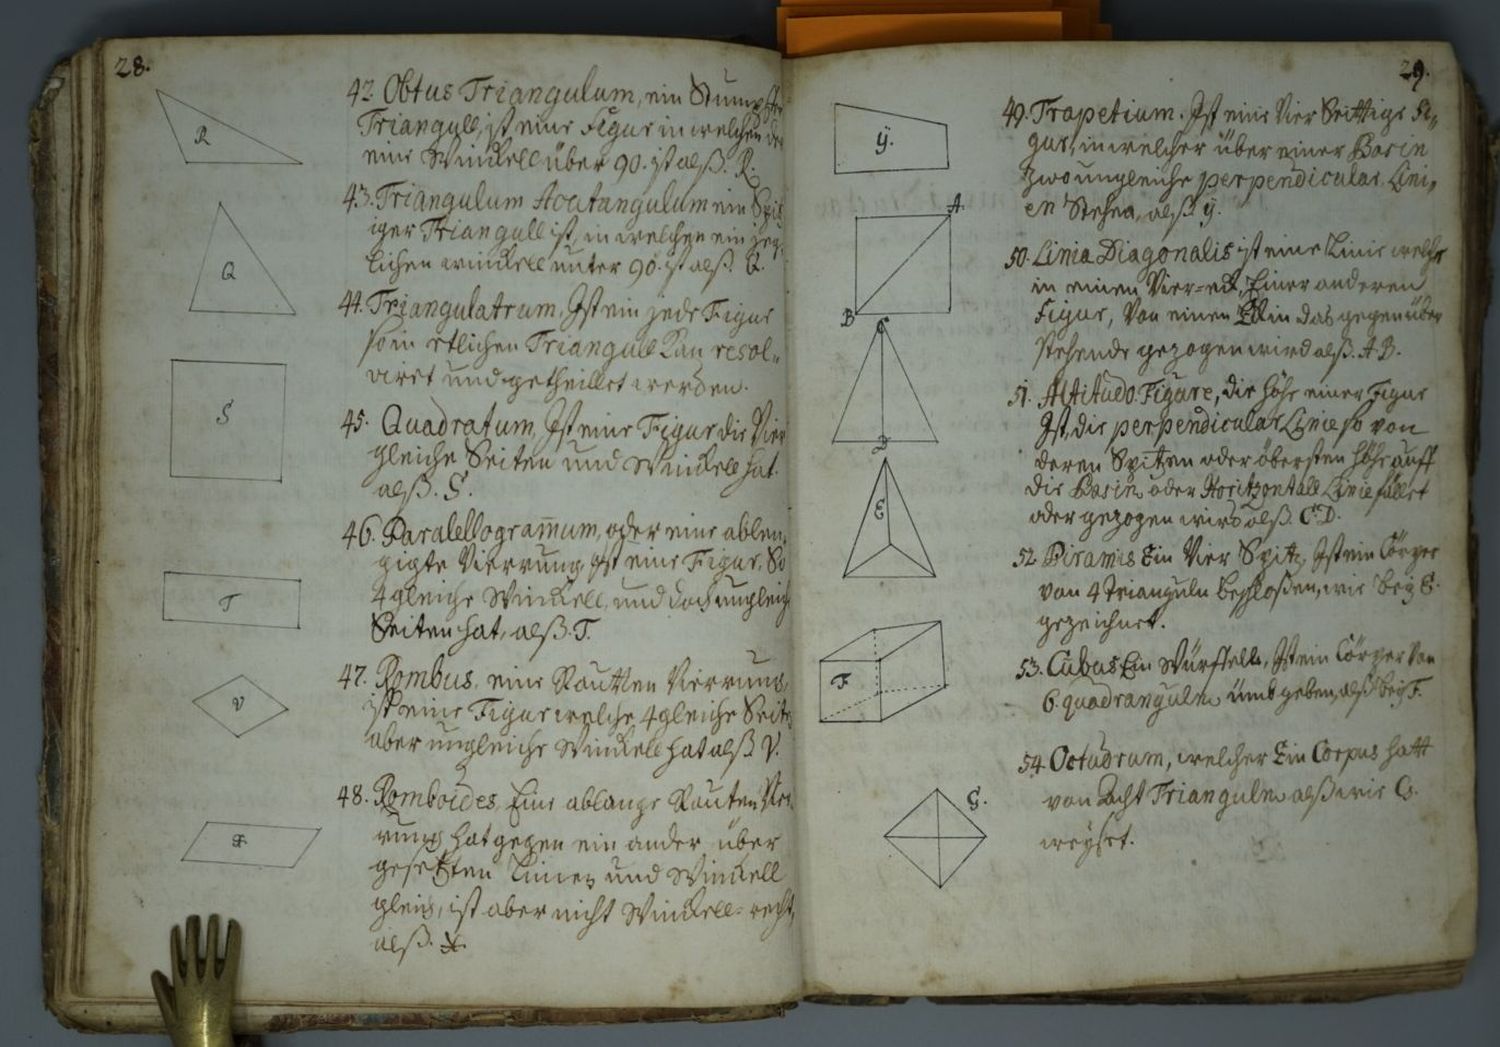 28.
R
42. Obtus Triangulum, ein Stumpffer
Triangull, ist eine Figur in welchen der
eine Winckell über 90. ist alß. R.
Q
43. Triangulum Acutangulum ein Spit
iger Triangull ist, in welchen ein jeg,
lichen winckell unter 90. ist alß. Q.
44. Triangulatrum, Ist ein jede Figur
so in etlichen Triangull Kan resol„
viret und getheillet werden.
S
45. Quadratum, Ist eine Figur die Vier
gleiche Seiten und Winckell hat.
alß. S.
T
46. Paralellogram̄um, oder eine ablen,
gigte Vierrung, ist eine Figur, So
4 gleiche Winckell, und doch ungleich
Seiten hat, alß. T.
V
47. Rombus, eine Rautten Vierrung,
ist eine Figur welche 4 gleiche Seite
aber ungleiche Winckell hat alß V.
X
48. Romboides, Eine ablange Rauten Vier
rung hat gegen ein ander über
gesetzten Linien und Winckell
gleich, ist aber nicht Winckell=recht,
alß. X.
29.
ÿ.
49. Trapetium. Ist eine Vier Seittige Fi„
gur, in welcher über einer Basin
zwo ungleiche perpendicular Lini„
en Stehen, alß ÿ.
A.
B
50. Linia Diagonalis ist eine Linie welche
in einen Vier=eck, Einer anderen
Figur, Von einen Eck in das gegenüber
stehende gezogen wird alß. A B.
C
D
51. Altitudo Figure, die Höhe einer Figur
Ist, die perpendicular Linie so von
deren Spitzen oder öbersten Höhe auff
die Basin oder Horitzontall Linie fället
oder gezogen wird alß. C D.
E
52. Piramis Ein Vier Spitz, Ist ein Cörper
von 4 Trianguln beschloßen, wie beÿ E.
gezeichnet.
F
53. Cubus Ein Würffell, Ist ein Cörper Von
6. quadranguln ümbgeben, alß beÿ F.
G.
54. Octadrum, welcher Ein Corpus hatt
von Acht Trianguln alß wie G.
weÿset.